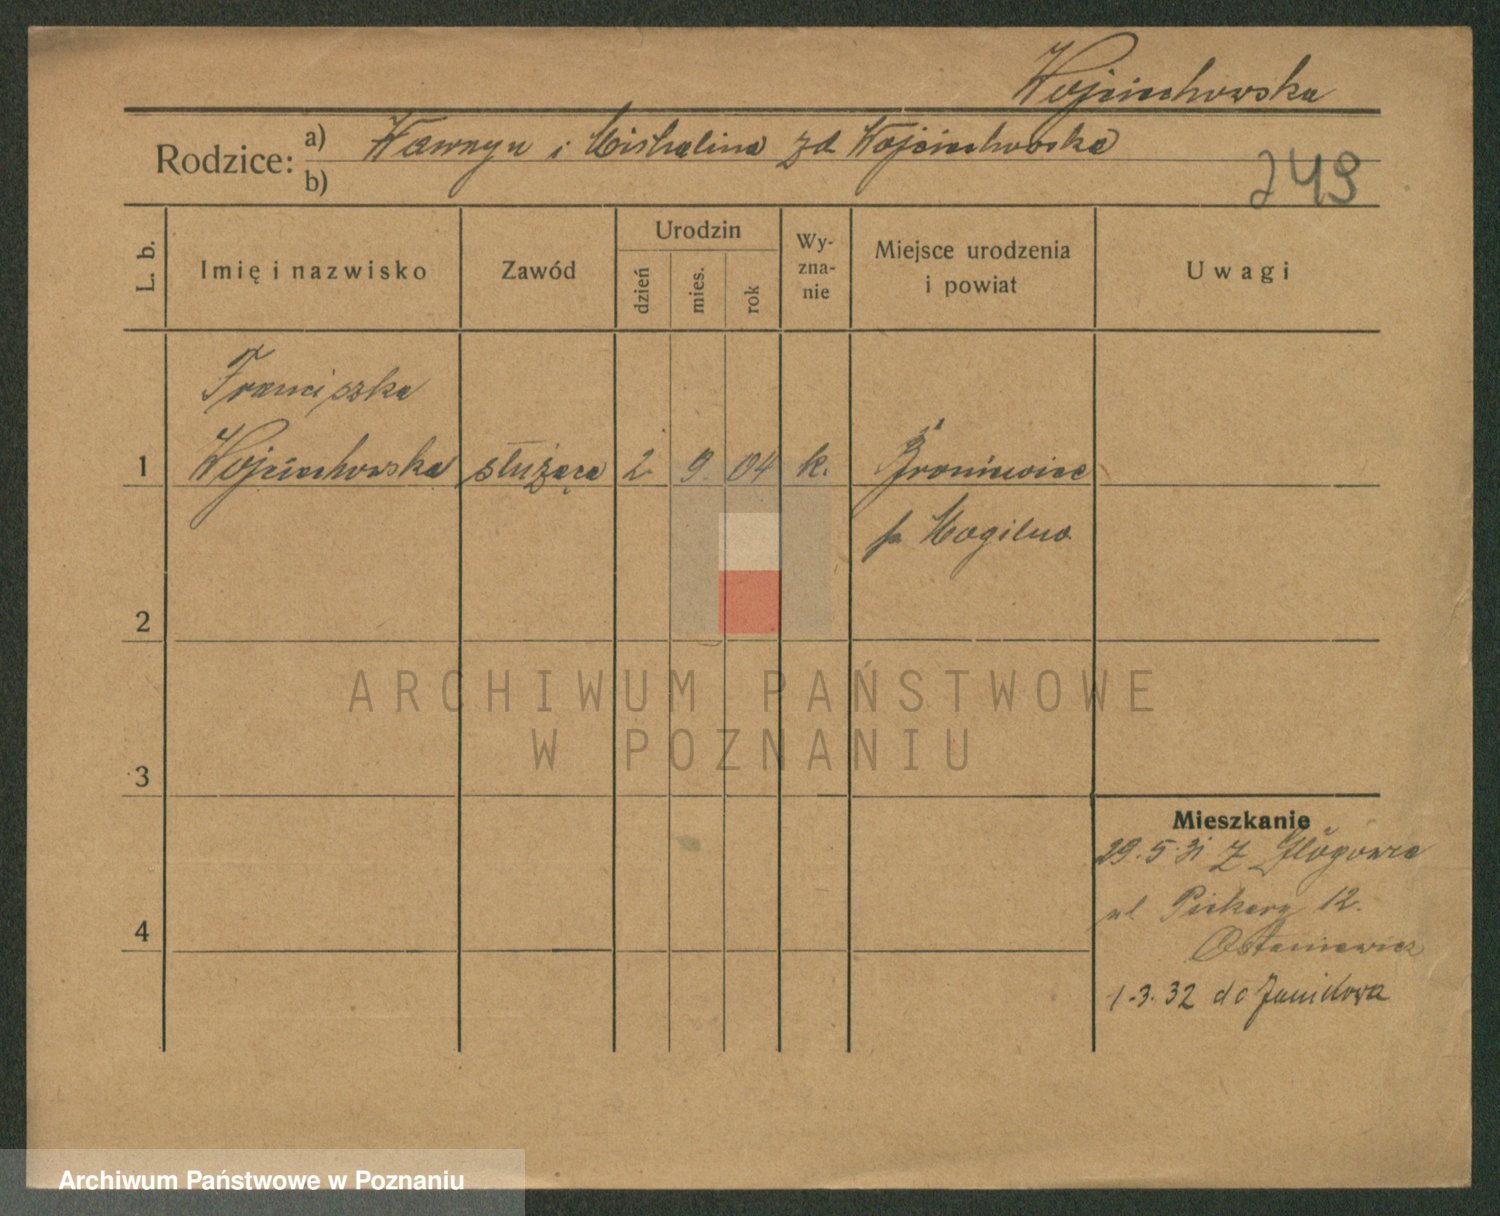 Wojciechowska
Rodzice: a) Wawrzyn i Michalina zd Wojciechowska
b)
249
L. b.
Imię i nazwisko
Zawód
Urodzin
dzień
mies.
rok
Wy-
zna-
nie
Miejsce urodzenia
i powiat
Uwagi
Franciszka
1 Wojciechowska służąca 2. 9. 04 k. Broniewice
p. Mogilno
2
ARCHIWUM PAŃSTWOWE
W POZNANIU
3
Mieszkanie
29.5.31 z
ul Piekary 12.
4
1.3.32 do Janikowa
Archiwum Państwowe w Poznaniu